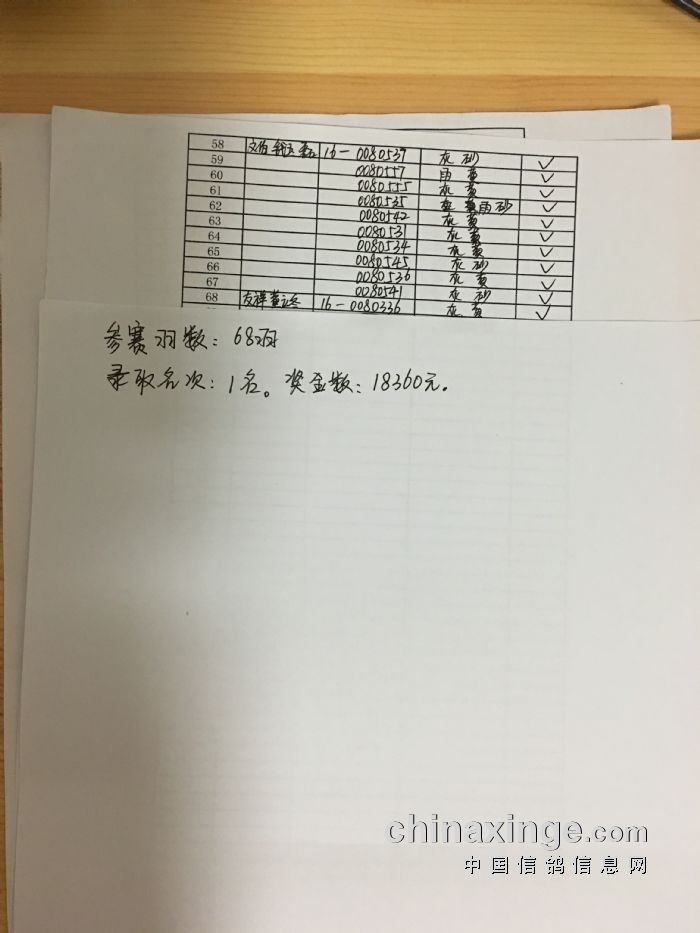 58 16-0080539 灰砂 ✓
59 0080557 雨黄 ✓
60 0080555 灰黄 ✓
61 0080535 雨砂 ✓
62 0080542 灰黄 ✓
63 0080531 灰黄 ✓
64 0080534 灰黄 ✓
65 0080545 灰砂 ✓
66 0080536 灰黄 ✓
67 0080541 灰砂 ✓
68 友祥 16-0080336 灰黄 ✓
参赛羽数：68羽
录取名次：1名。奖金数：18360元.
chinaxinge.com
中国信鸽信息网